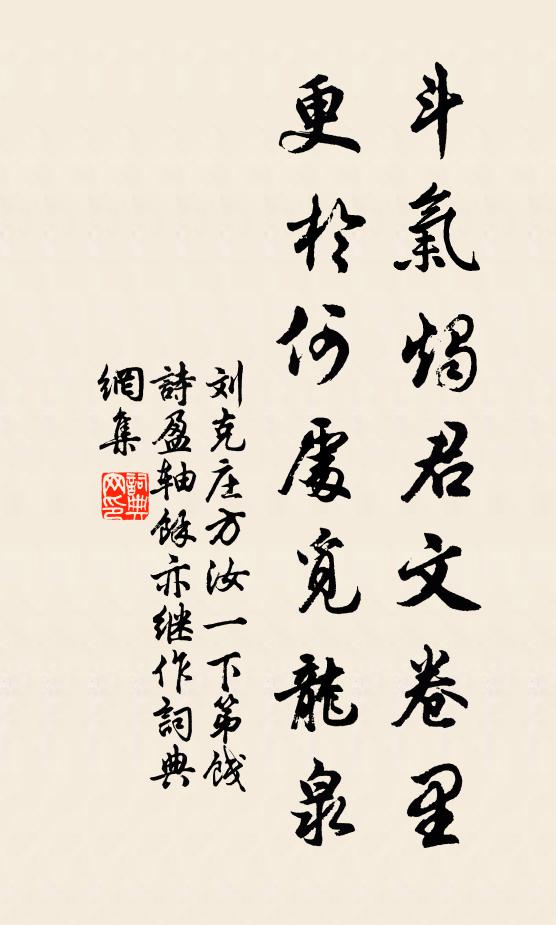 斗氣燭君文卷里
更於何處覓龍泉
刘克庄方汝一下第餞
詩盈轴餘亦继作詞典
網集
詞典
网印